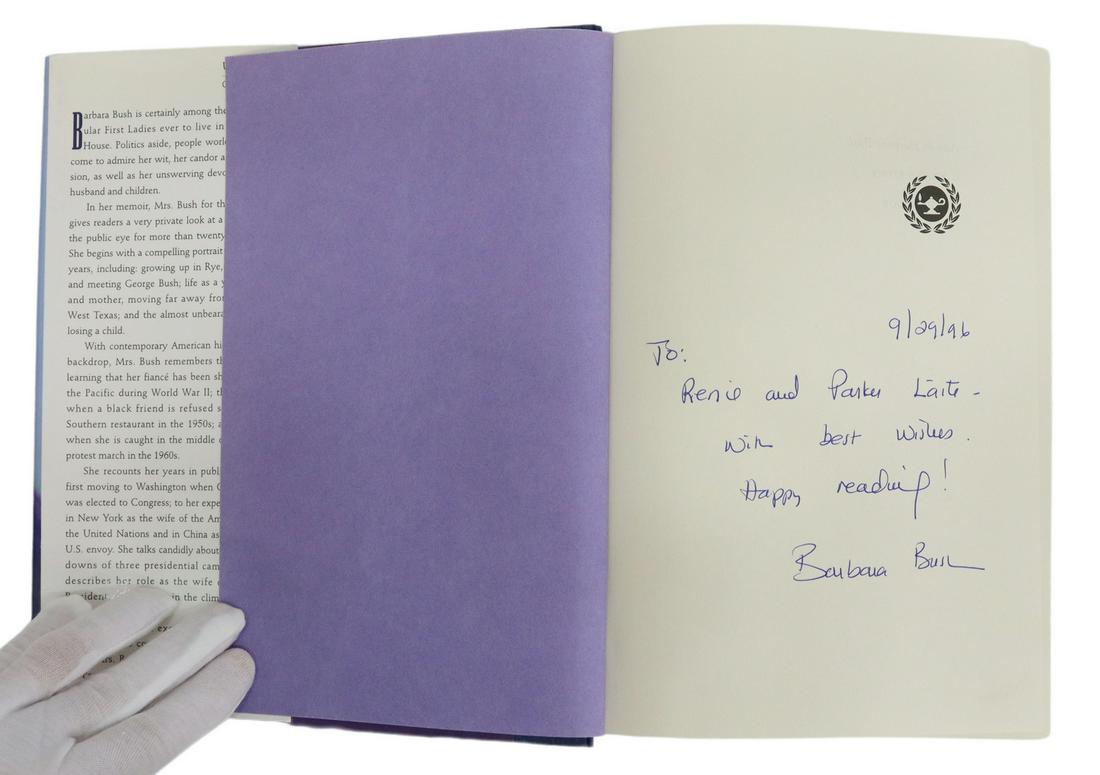 Barbara Bush is certainly among the
ular First Ladies ever to live in
House. Politics aside, people worl
come to admire her wit, her candor a
sion, as well as her unswerving devo
husband and children.
In her memoir, Mrs. Bush for th
gives readers a very private look at a
the public eye for more than twenty
She begins with a compelling portrait
years, including: growing up in Rye,
and meeting George Bush; life as a y
and mother, moving far away from
West Texas; and the almost unbeara
losing a child.
With contemporary American hi
backdrop, Mrs. Bush remembers th
learning that her fiancé has been sh
the Pacific during World War II; th
when a black friend is refused s
Southern restaurant in the 1950s; a
when she is caught in the middle o
protest march in the 1960s.
She recounts her years in publ
first moving to Washington when G
was elected to Congress; to her expe
in New York as the wife of the Am
the United Nations and in China as
U.S. envoy. She talks candidly about
downs of three presidential cam
describes her role as the wife o
in the clim
9/29/96
To:
Renie and Parker Laite -
With best wishes.
Happy reading!
Barbara Bush